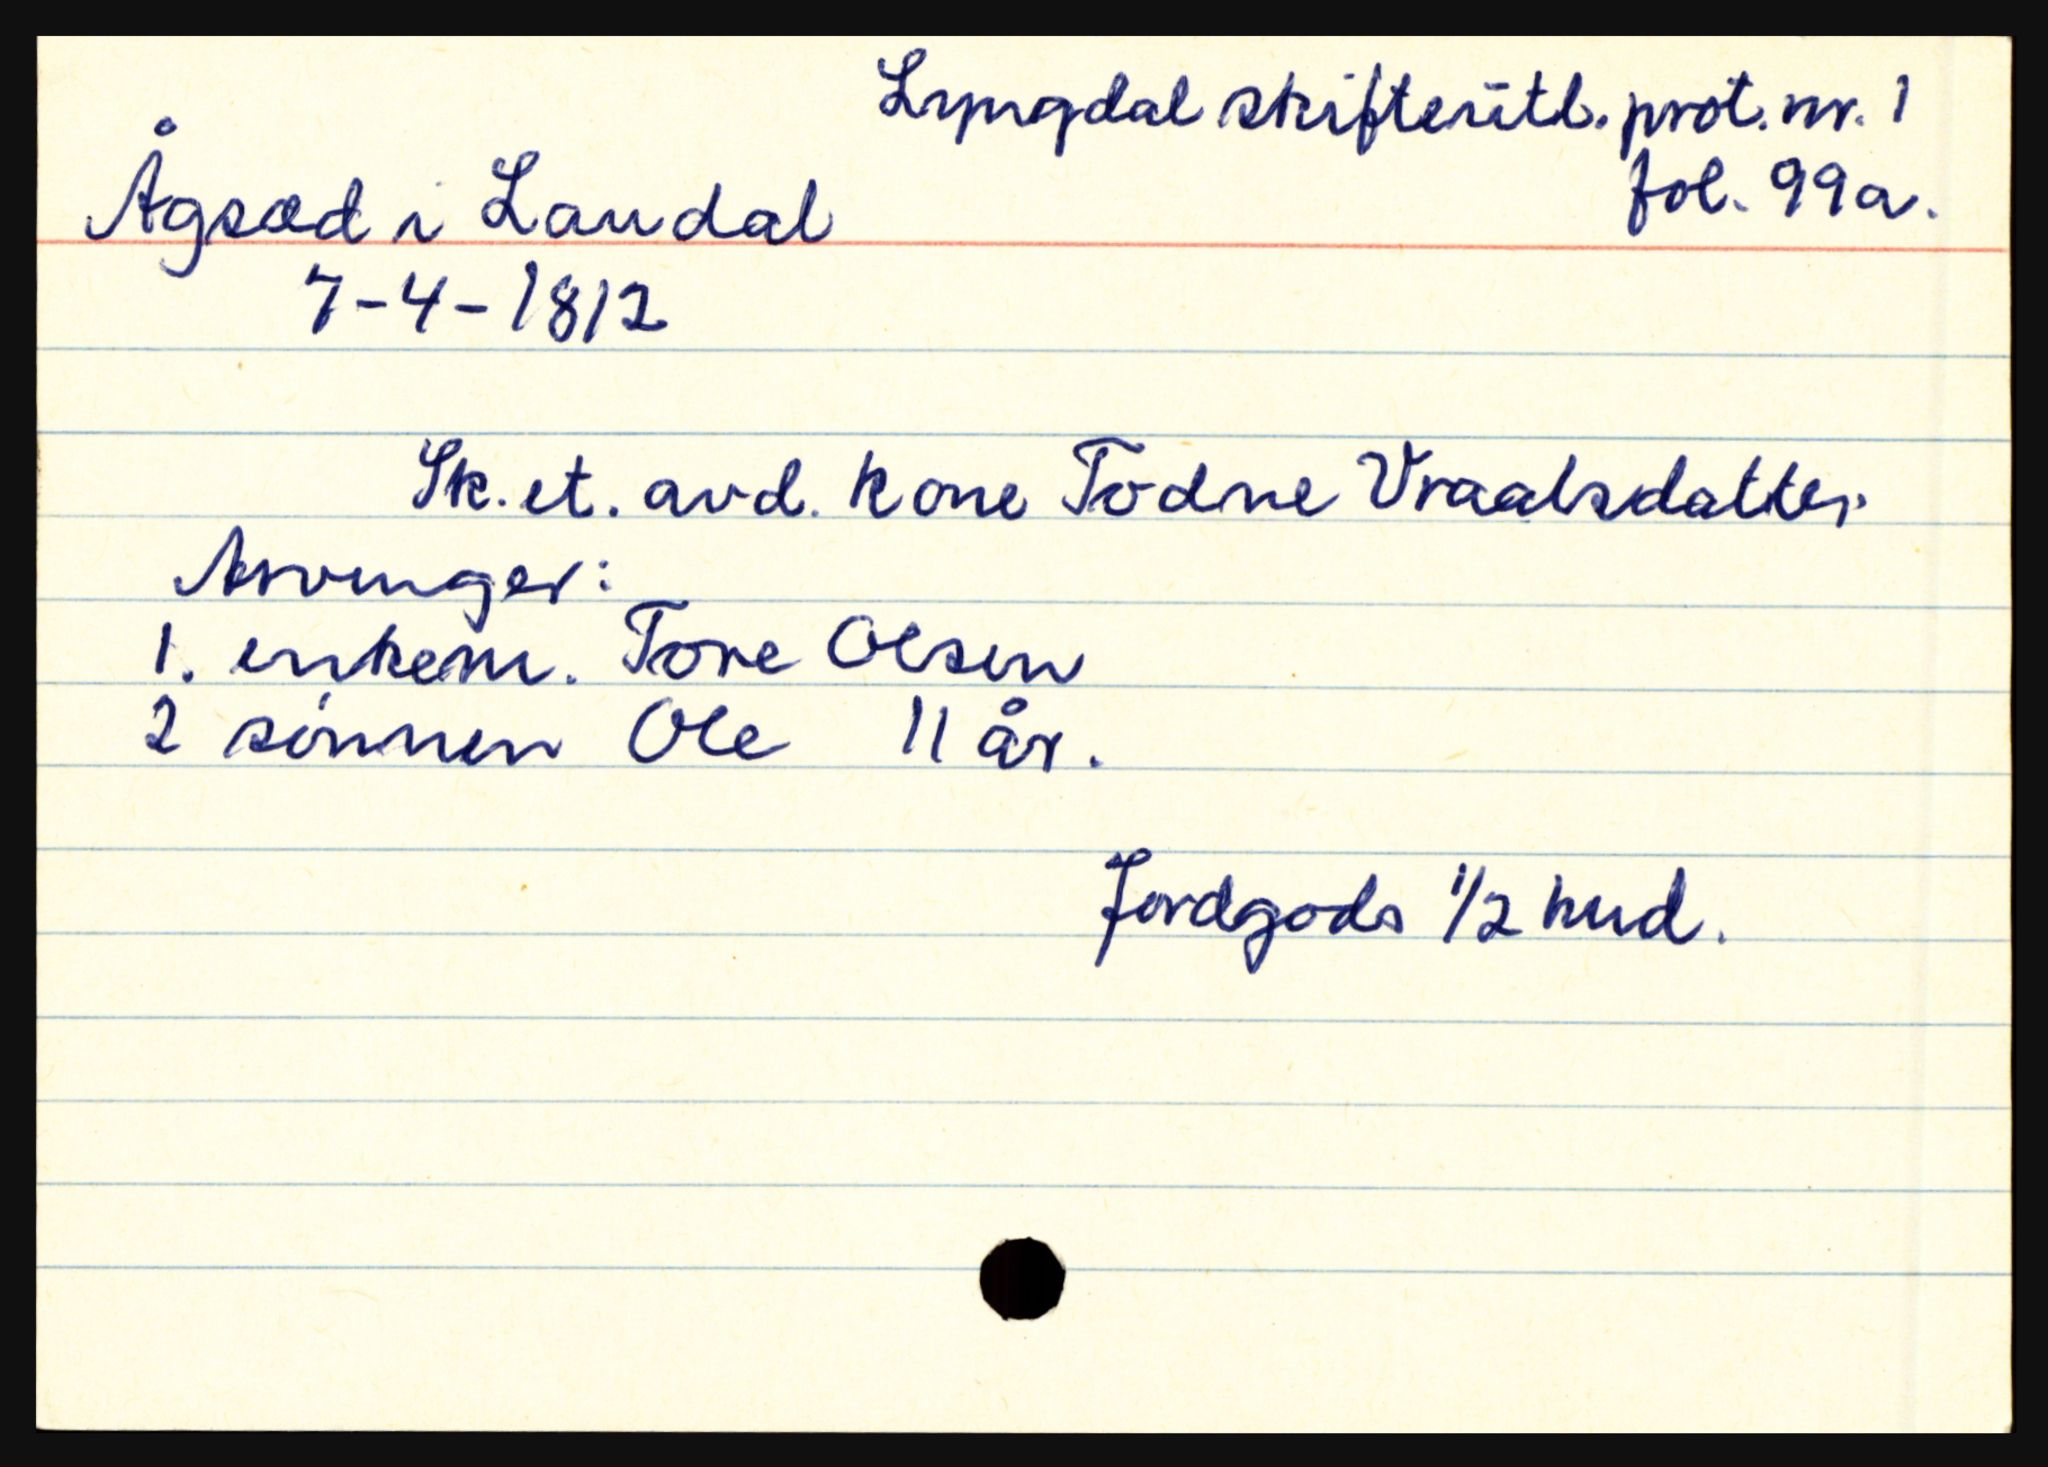 Lyngdal skifteutl. prot. nr. 1
fol. 99a.
Ågsæd i Laudal
7-4-1812
Sk. et. avd. kone Todne Vraalsdatter
Arvinger:
1. enkem. Tore Olsen
2 sønnen Ole 11 år.
Jordgods 1/2 hud.